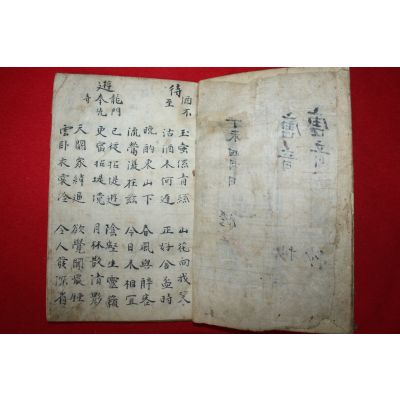 唐音
唐音
丁未四月日
待酒不至
玉壺係青絲 山花向我笑
沽酒來何遲 正好含盃時
晚酌東山下 春風與醉客
流鶯復在茲 今日 相宜
遊龍門奉先寺
已從招提遊 陰壑生靈籟
更宿招提境 月林散清影
天闕象緯逼 欲覺聞晨鍾
雲臥衣裳冷 令人發深省